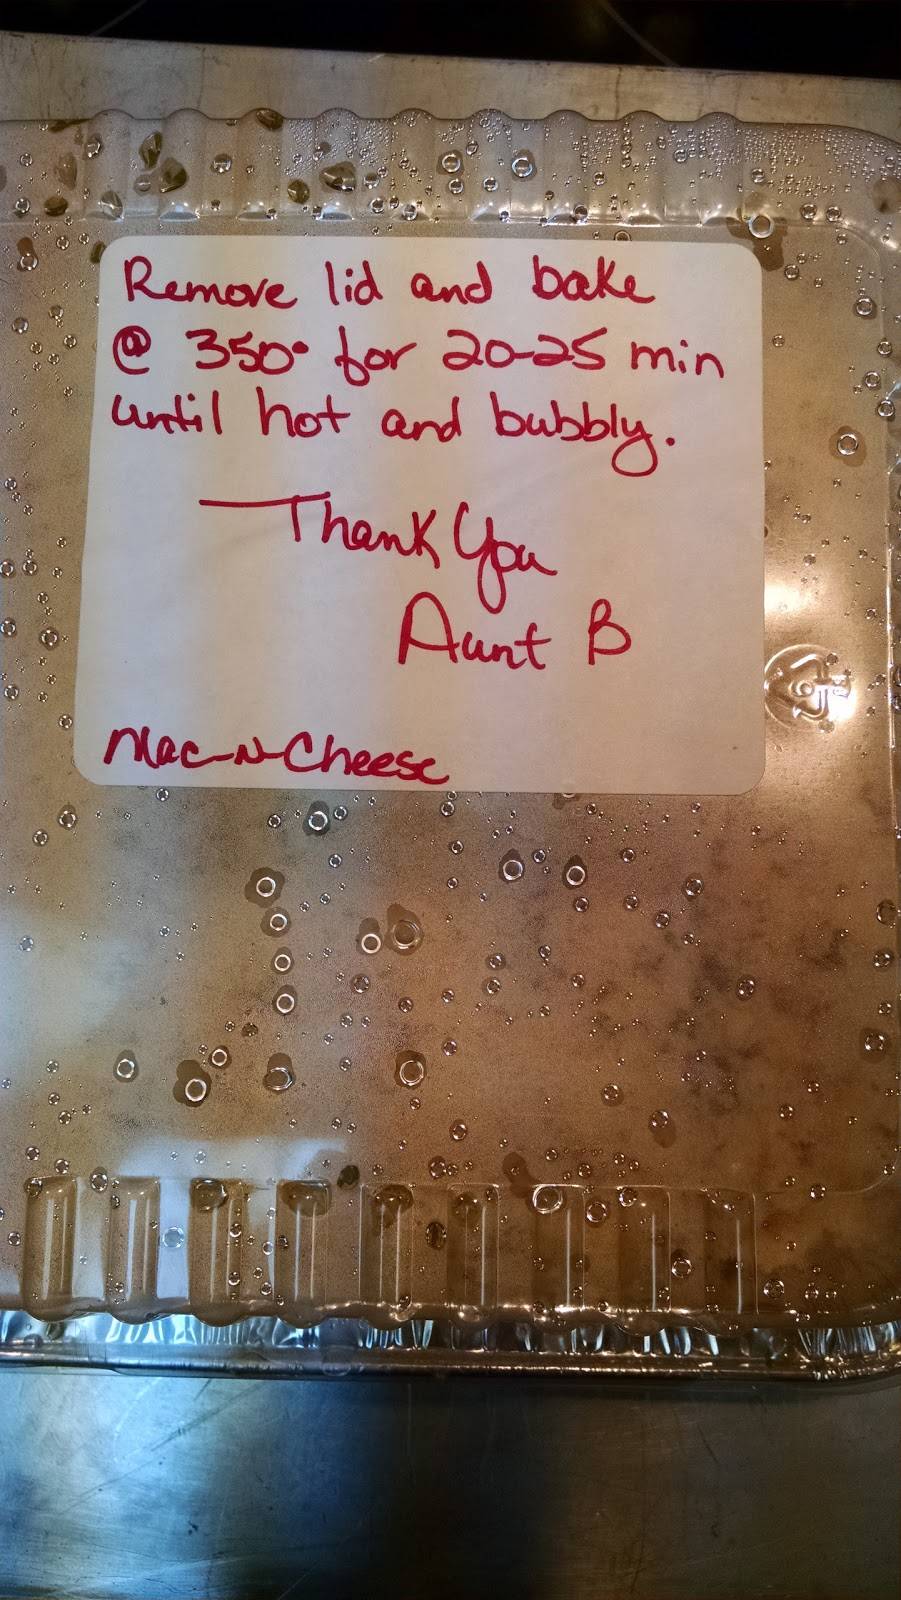 Remove lid and bake
@ 350° for 20-25 min
until hot and bubbly.
Thank You
Aunt B
Mac-N-Cheese